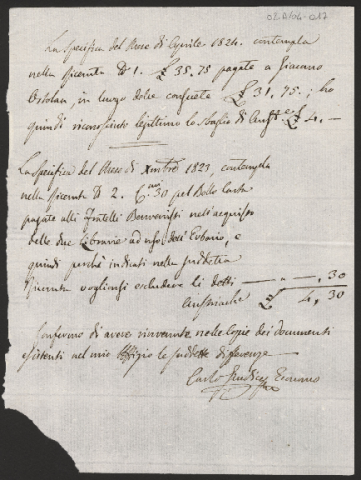 02.A/04-017
La Specifica del Mese di Aprile 1824. contempla
nella Ricevuta D 1. £ 35.75 pagate a Giacomo
Ortolan, in luogo delle consuete £ 31.75; ho
quindi riconosciuto legittimo lo sbaglio di Austr.e £ 4.—
La Specifica del Mese di Xmbre 1823, contempla
nella Ricevuta D 2. C.mi 30 pel Bollo Carta
pagate alli Fratelli Benvenisti nell'acquisto
delle due Librarie ad uso dell' Erbario, e
quindi perchè indicati nella suddetta
Ricevuta vogliansi escludere li detti — " — , 30
Austriache £ 4, 30
Confermo di avere rinvenute nelle Copie dei documenti
esistenti nel mio Offizio le suddette differenze —
Carlo